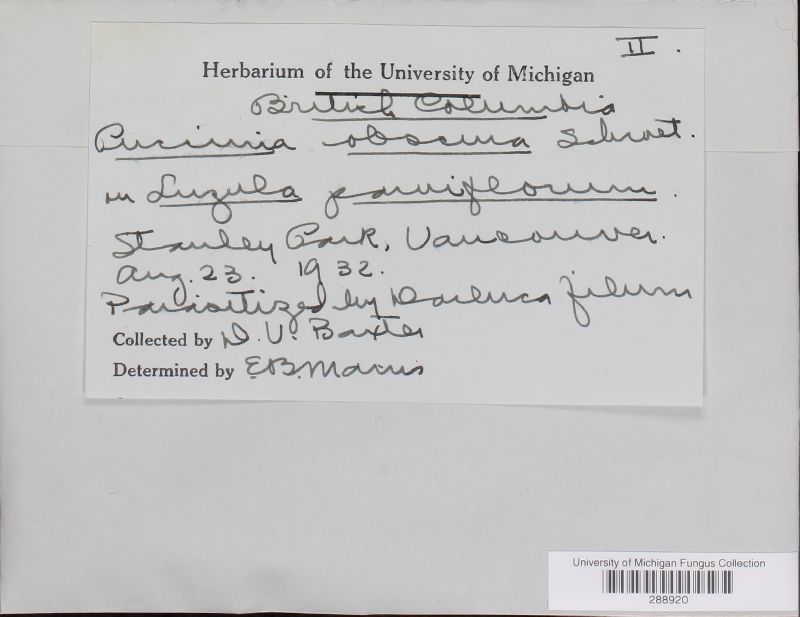 II .
Herbarium of the University of Michigan
British Columbia
Puccinia obscura Schroet.
on Luzula parviflorum .
Stanley Park, Vancouver.
Aug. 23. 1932.
Parasitized by Darluca filum
Collected by D. V. Baxter
Determined by E.B. Mains
University of Michigan Fungus Collection
288920